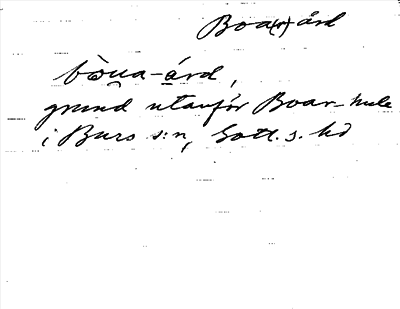 Boa(r)-ård
bòu̯a-árd,
grund utanför Boar-hule
i Burs s:n, Gotl. s. hd